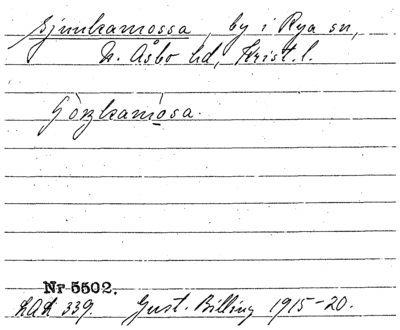 Sjunkamossa, by i Rya sn,
N. Åsbo hd, Krist. l.
Nr 5502.
LAL 339. Gust. Billing 1915-20.